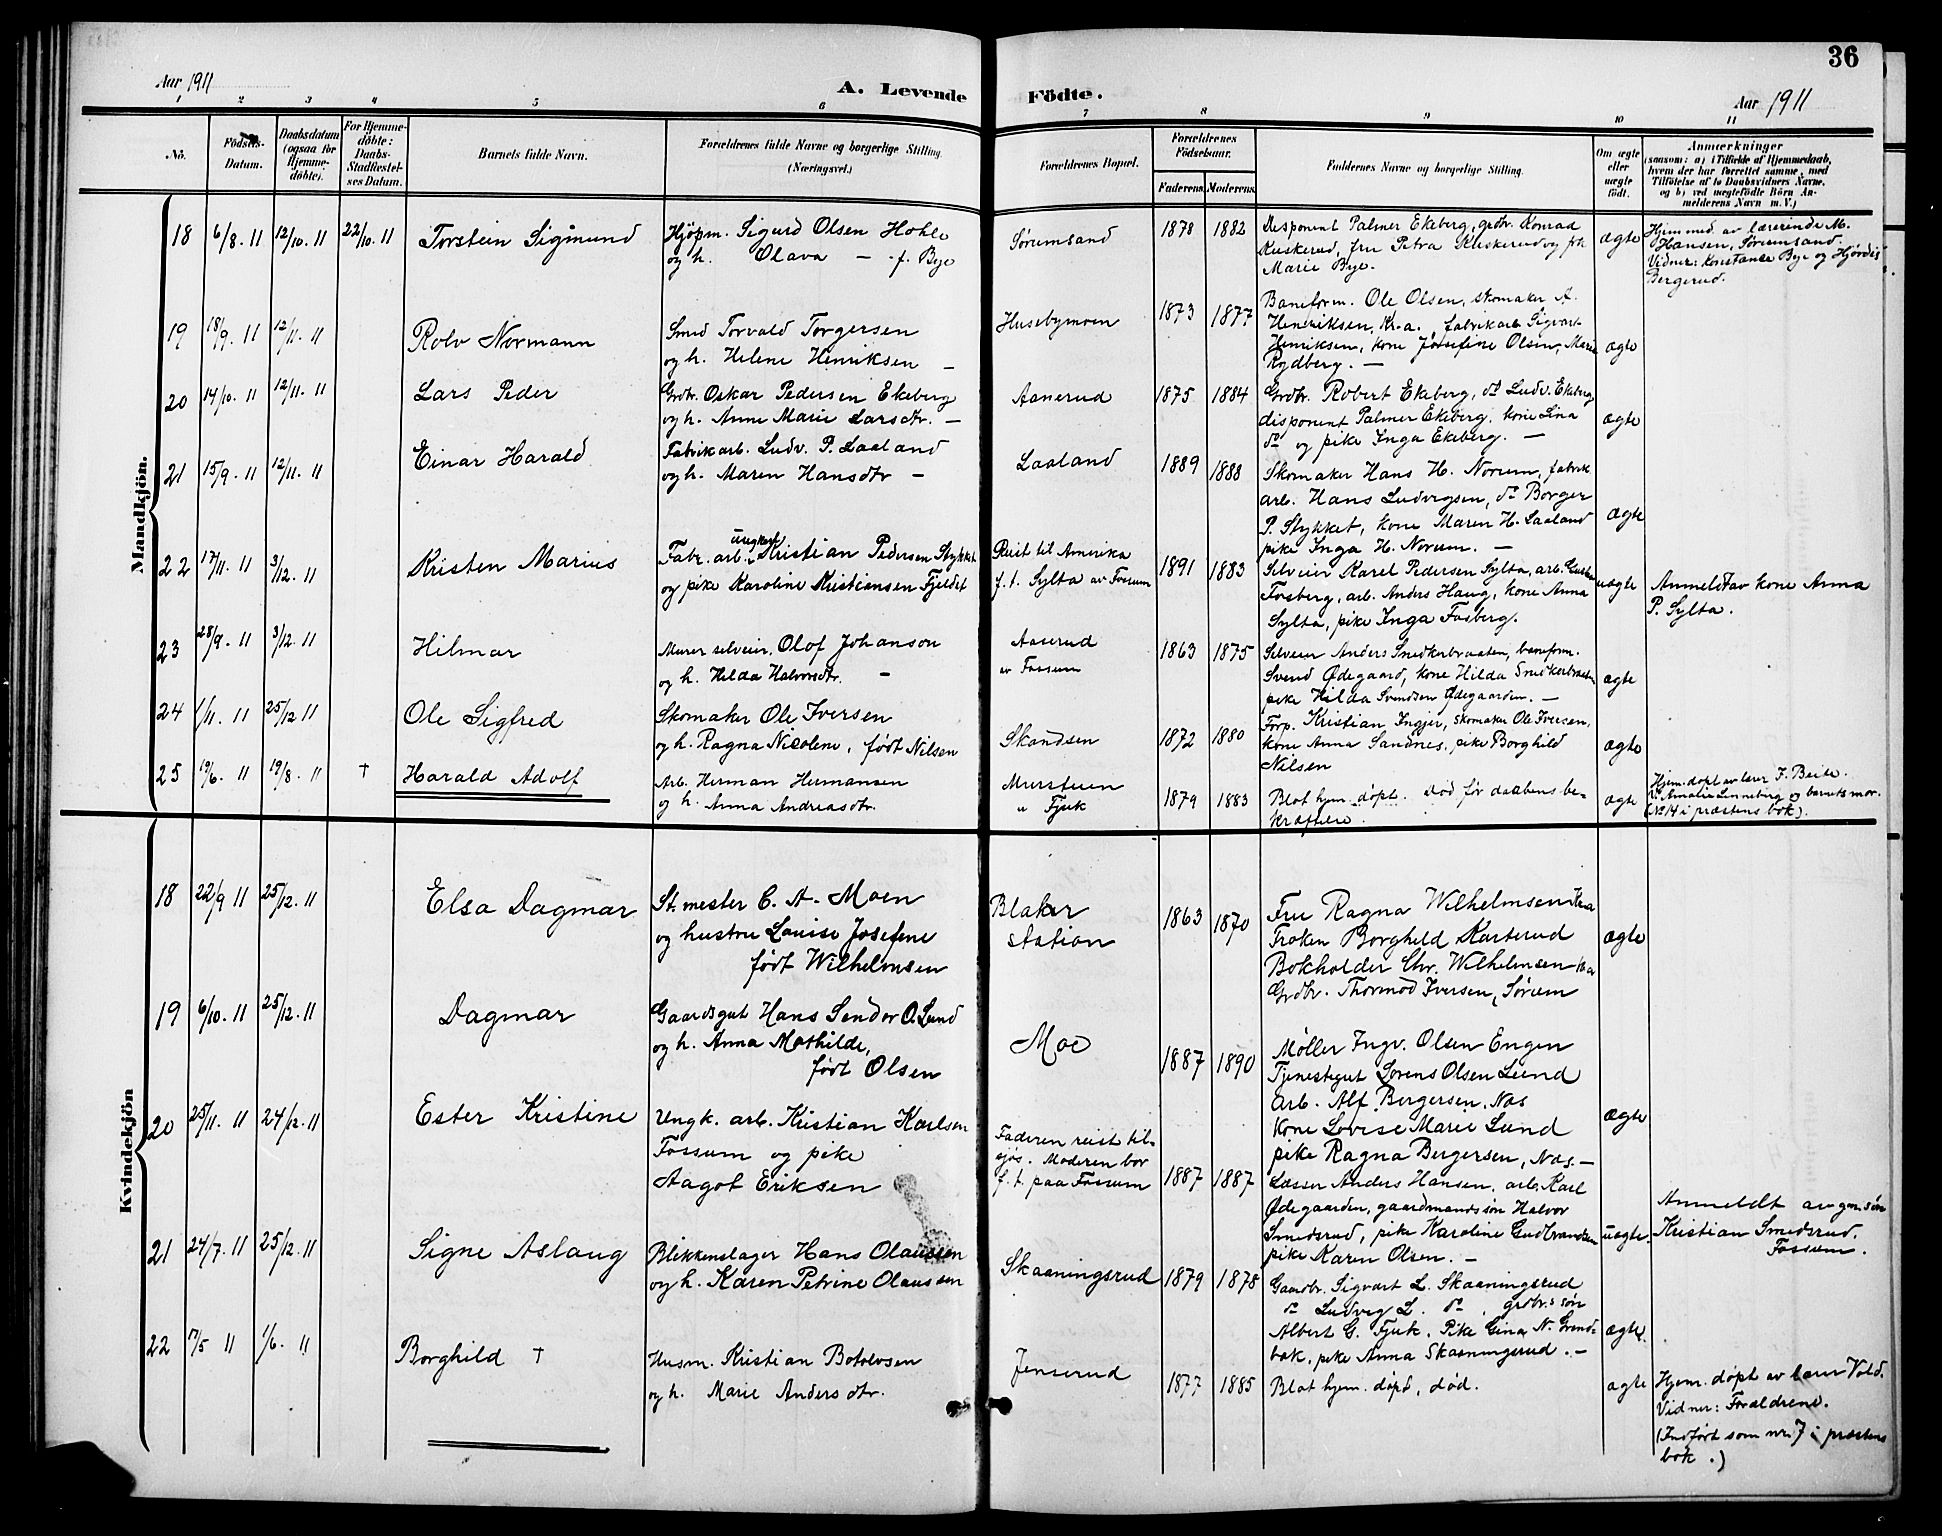 36
Aar 1911
A. Levende Födte.
Aar 1911
1 2 3 4 5 6 7 8 9 10 11
No.
Födsels-
Datum.
Daabsdatum
(ogsaa for
Hjemme-
döbte).
For Hjemme-
döbte:
Daabs-
Stadfæstel-
ses Datum.
Barnets fulde Navn.
Forældrenes fulde Navne og borgerlige Stilling
(Næringsvei.)
Forældrenes Bopæl.
Forældrenes
Födselsaar.
Faderens. Moderens.
Faddernes Navne og borgerlige Stilling.
Om ægte
eller
uægte
født.
Anmærkninger
(saasom: a) i Tilfælde af Hjemmedaab,
hvem der har forrettet samme, med
Tilföielse af to Daabsvidners Navne,
og b) ved uægtefödte Börn An-
melderens Navn m. V.)
Mandkjön.
18 6/8. 11 12/10. 11 22/10. 11 Torstein Sigmund
Hjöpm. Sigurd Olsen Hohle
og h. Olava — f. Bye
Sørumsand
1878 1882
Disponent Palmer Ekeberg, grdbr. Konrad
Kuskerud, fru Petra Kuskerud og frk
Marie Bye.
ægte
Hjemmed. av lærerinde M.
Hansen, Sørumsand.
Vidner: Konstance Bye og Hjørdis
Bergerud.
19 18/9. 11 12/11. 11 Rolv Normann
Smed Torvald Torgersen
og h. Helene Henriksen —
Husebymoen
1873 1877
Baneform. Ole Olsen, skomaker A.
Henriksen, Kr.a., fabrikarb. Sigvart
Henriksen, kone Josefine Olsen, Marie
Rydberg. —
ægte
20 14/10. 11 12/11. 11 Lars Peder
Grdbr. Oskar Pedersen Ekeberg
og h. Anne Marie Larsdtr. —
Aanerud
1875 1884
Grdbr. Robert Ekeberg, do Ludv. Ekeberg
disponent Palmer Ekeberg, kone Lina
do og pike Inga Ekeberg. —
ægte
21 15/9. 11 12/11. 11 Einar Harald
Fabrikarb. Ludv. P. Laaland
og h. Maren Hansdtr —
Laaland
1889 1888
Skomaker Hans H. Norum, fabrik
arb. Hans Ludvigsen, do Borger
P. Stykket, kone Maren H. Laaland
pike Inga H. Norum. —
ægte
22 17/11. 11 3/12. 11 Kristen Marius
Fabr. arb. ungkar Kristian Pedersen Stykket
og pike Karoline Kristiansen Fjeldet
Reist til Amerika
f. t. Sylta av Fossum
1891 1883
Selveier Karel Pedersen Sylta, arb.
Fosberg, arb. Anders Haug, kone Anna
Sylta, pike Inga Fosberg.
uægte
Anmeldt av kone Anna
P. Sylta.
23 28/9. 11 3/12. 11 Hilmar
Murer selveier, Olof Johanson
og h. Hilda Halvorsdtr. —
Aaserud
av Fossum
1863 1875
Selveier Anders Snedkerbraaten, baneform.
Svend Ødegaard, kone Hilda Snedkerbraaten
pike Hilda Svendsen Ødegaarden. —
ægte
24 1/11. 11 25/12 11 Ole Sigfred
Skomaker Ole Iversen
og h. Ragna Nicoline, født Nilsen
Skandsen
1872 1880
Forp. Kristian Ingjer, skomaker Ole Iversen,
kone Anna Sandnes, pike Borghild
Nilsen
ægte
25 19/6. 11 19/8. 11 † Harald Adolf
Arb. Herman Hermansen
og h. Anna Andreasdtr.
Mursteien
u Fjuk
1879 1883
Blot hjem. døpt. Død før daabens be-
kræftelse.
ægte
Hjem. døpt av lærer F. Beite.
V. Amalie Linneberg og barnets mor.
(No 14 i præstens bok).
Kvindekjön
18 22/9 11 25/12. 11 Elsa Dagmar
St. mester C. A. Moen
og hustru Louise Josefine
født Wilhelmsen
Blaker
station
1863 1870
Fru Ragna Wilhelmsen Kra
Frøken Borghild Karterud
Bokholder Chr. Wilhelmsen Kra
Grdbr. Thormod Iversen, Sørum
ægte
19 6/10. 11 25/12. 11 Dagmar
Gaardsgut Hans Sendor O. Lund
og h. Anna Mathilde,
født Olsen
Moe
1887 1890
Møller Ingv. Olsen Engen
Tjenestegut Lorens Olsen Lund
Arb. Alf. Bergersen, Nas
Kone Lovise Marie Lund
pike Ragna Bergersen, Nas. —
ægte
20 25/11. 11 24/12. 11 Ester Kristine
Ungk. arb. Kristian Karlsen
Fossum og pike
Aagot Eriksen
Faderen reist til-
sjøs. Moderen bor
f. t. paa Fossum
1887 1887
Læsser Anders Hansen, arb. Karl
Ødegaarden, gaardmandssøn Halvor
Smedsrud, pike Karoline Gudbrandsen
pike Karen Olsen. —
uægte.
Anmeldt av gm.søn
Kristian Smedsrud.
Fossum.
21 24/7. 11 25/12. 11 Signe Aslaug
Blikkenslager Hans Olaussen
og h. Karen Petrine Olaussen
Skaaningsrud
1879 1878
Gaardbr. Sigvart L. Skaaningsrud
do Ludvig L. do, grdbr.s søn
Albert G. Fjuk. Pike Gina N. Grend-
bak, pike Anna Skaaningsrud. —
ægte.
22 17/5 11 1/6. 11 Borghild †
Husm. Kristian Botolvsen
og h. Marie Andersdtr.
Jenserud
1877 1885
Blot hjem. døpt, død.
ægte
Hjem. døpt av lærer Vold.
Vidner: Forældrene.
(Indført som nr. 7 i præstens
bok.)